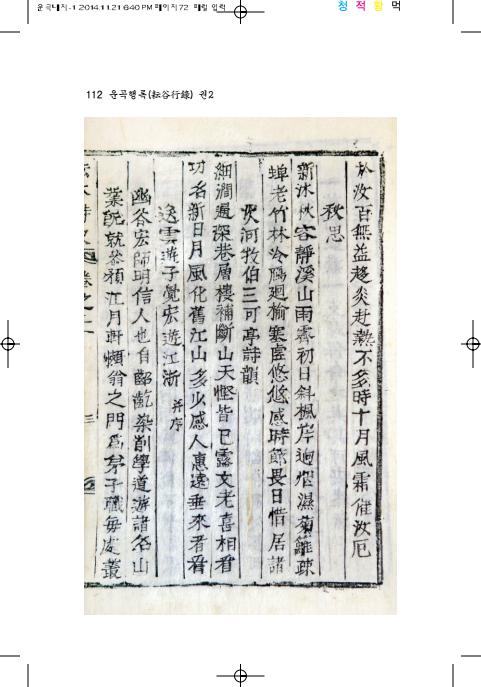 운곡내지-1 2014.11.21 6:40 PM 페이지72 매럴 입력
청 적 황 먹
112 운곡행록(耘谷行錄) 권2
於汝百無益趍炎赴熱不多時十月風霜催汝厄
秋思
新沐秋容靜溪山雨霽初日斜楓岸逈烟濕菊籬疎
蟬老竹林冷鴈廻楡塞虛悠悠感時節畏日惜居諸
次河牧伯三可亭詩韻
細澗逼深巷層樓補斷山天慳皆已露文老喜相看
功名新日月風化舊江山多少感人惠遠垂來者看
送雲遊子覺宏遊江浙 并序
幽谷宏師明信人也自齠齔染削學道遊諸名山
業旣就叅頴江月軒懶翁之門爲弟子職每處叢
卷之二